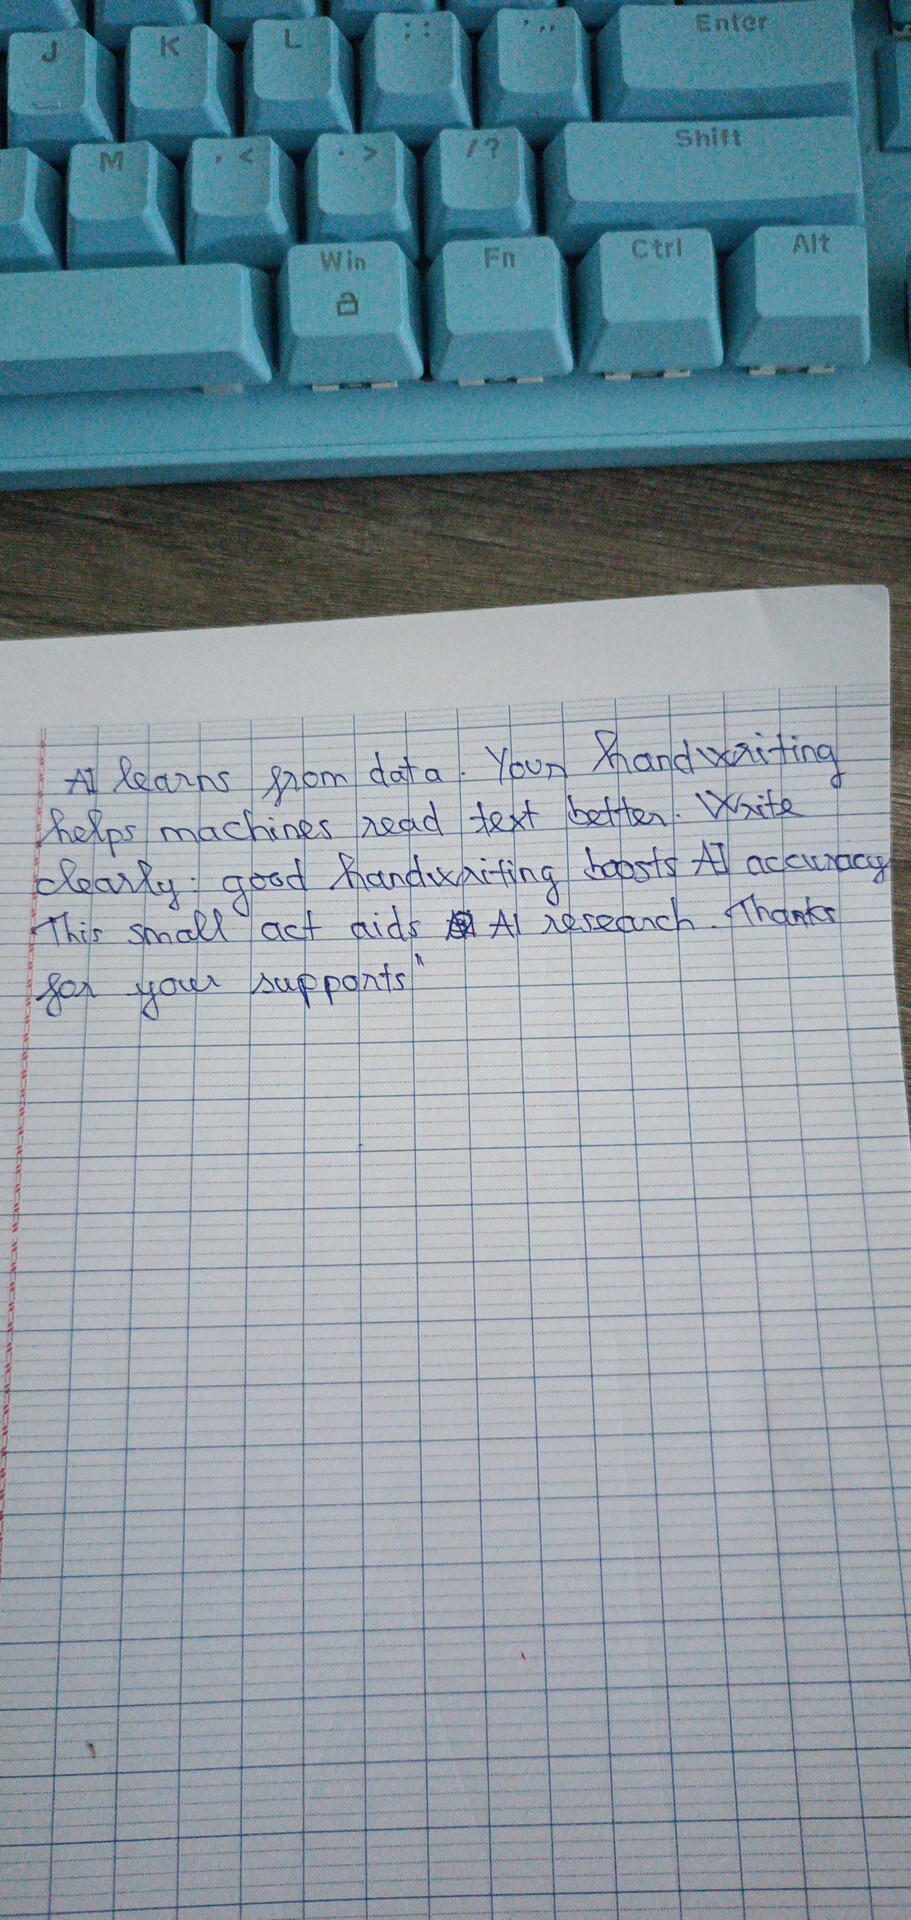 J K L : ; ' " Enter
M , < . > / ? Shift
Win Fn Ctrl Alt
AI learns from data. Your handwriting
helps machines read text better. Write
clearly: good handwriting boosts AI accuracy
This small act aids AI research. Thanks
for your supports"